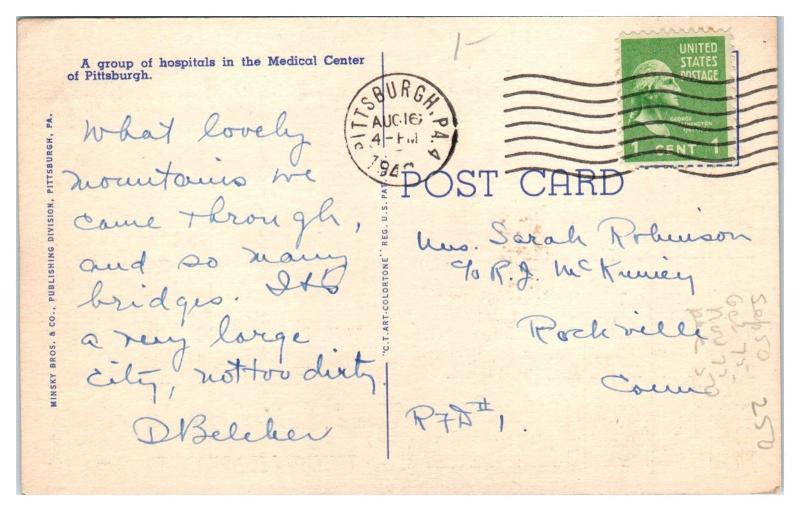 A group of hospitals in the Medical Center
of Pittsburgh.
What lovely
mountains we
came through,
and so many
bridges. It's
a very large
city, not too dirty.
D Belcher
MINSKY BROS. & CO., PUBLISHING DIVISION, PITTSBURGH, PA.
"C.T. ART-COLORTONE" REG. U.S. PAT.
PITTSBURGH, PA. 4
AUG 16
4 - PM
UNITED
STATES
POSTAGE
GEORGE
WASHINGTON
1 CENT 1
POST CARD
Mrs. Sarah Robinson
c/o R.J. McKinney
Rockville
Conn
RFD # 1,
250